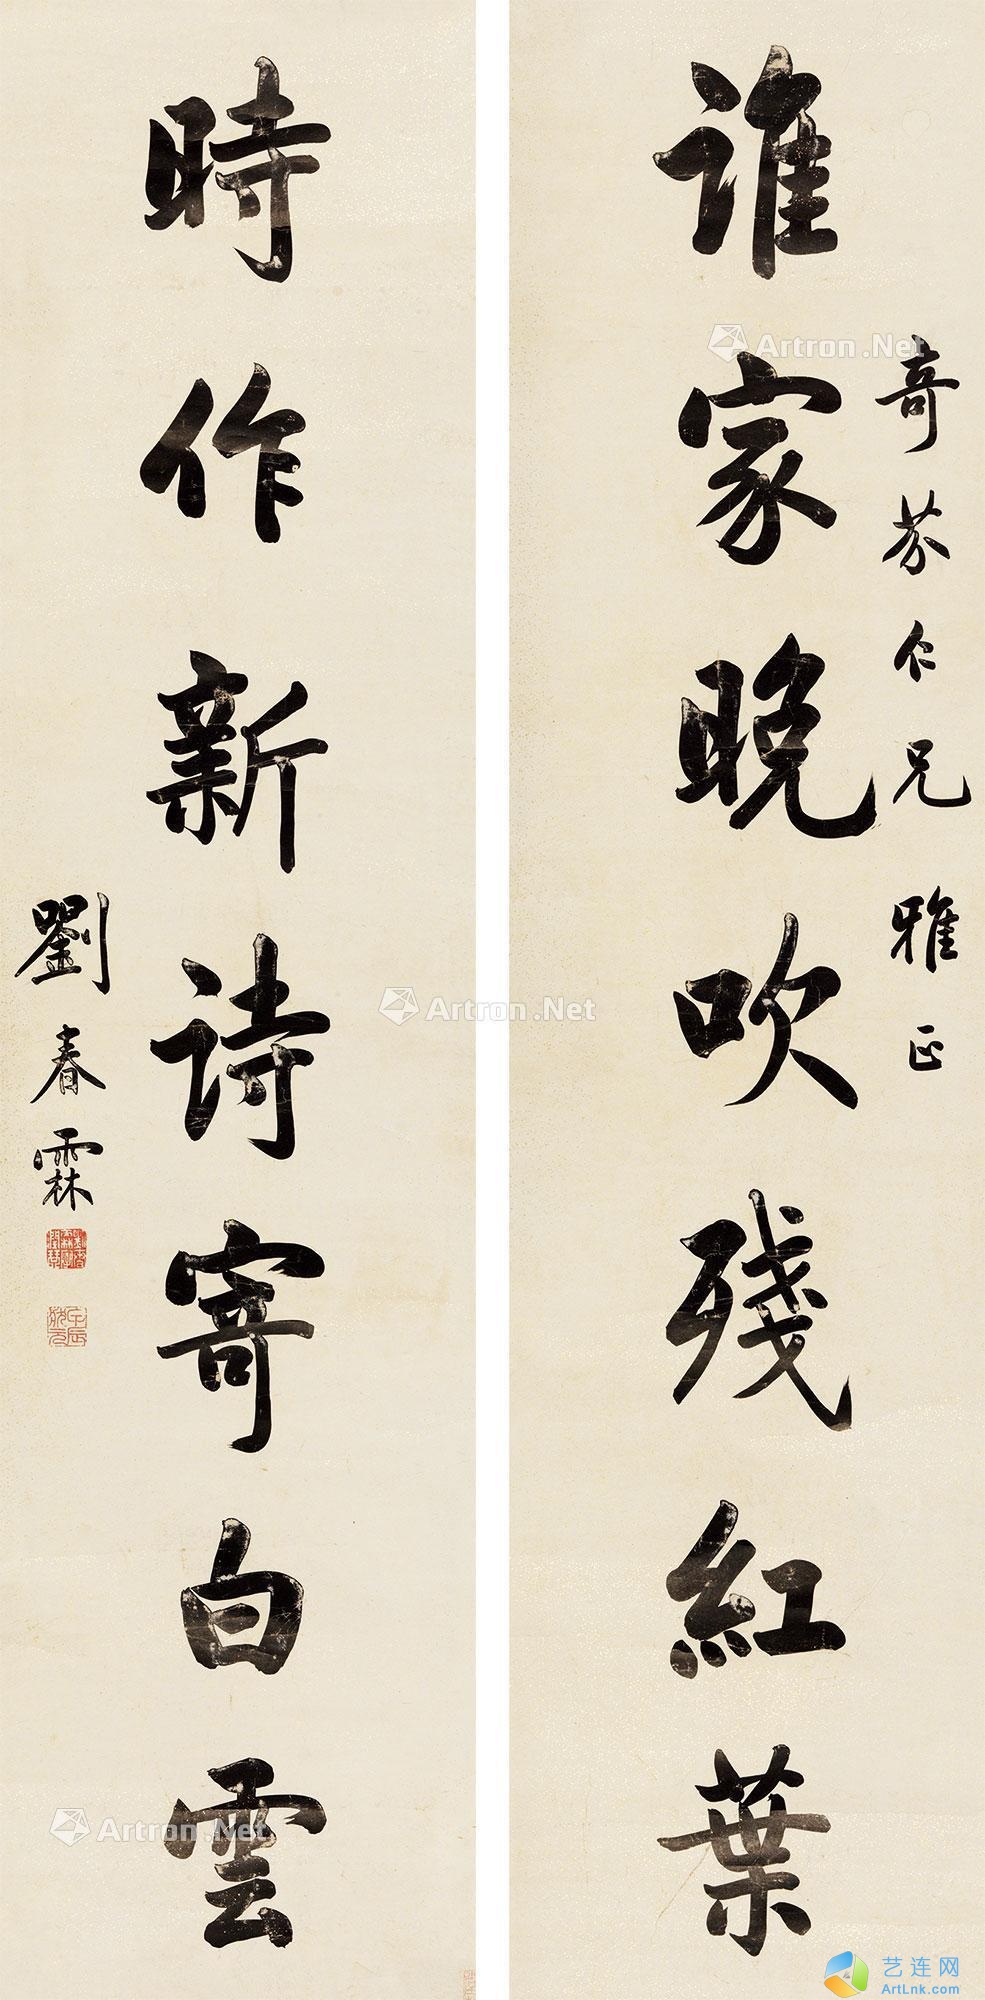 奇芬仁兄雅正
谁家晚吹残紅葉
時作新诗寄白雲
劉春霖
Artron.Net
Artron.Net
Artron.Net
艺连网
ArtLnk.com